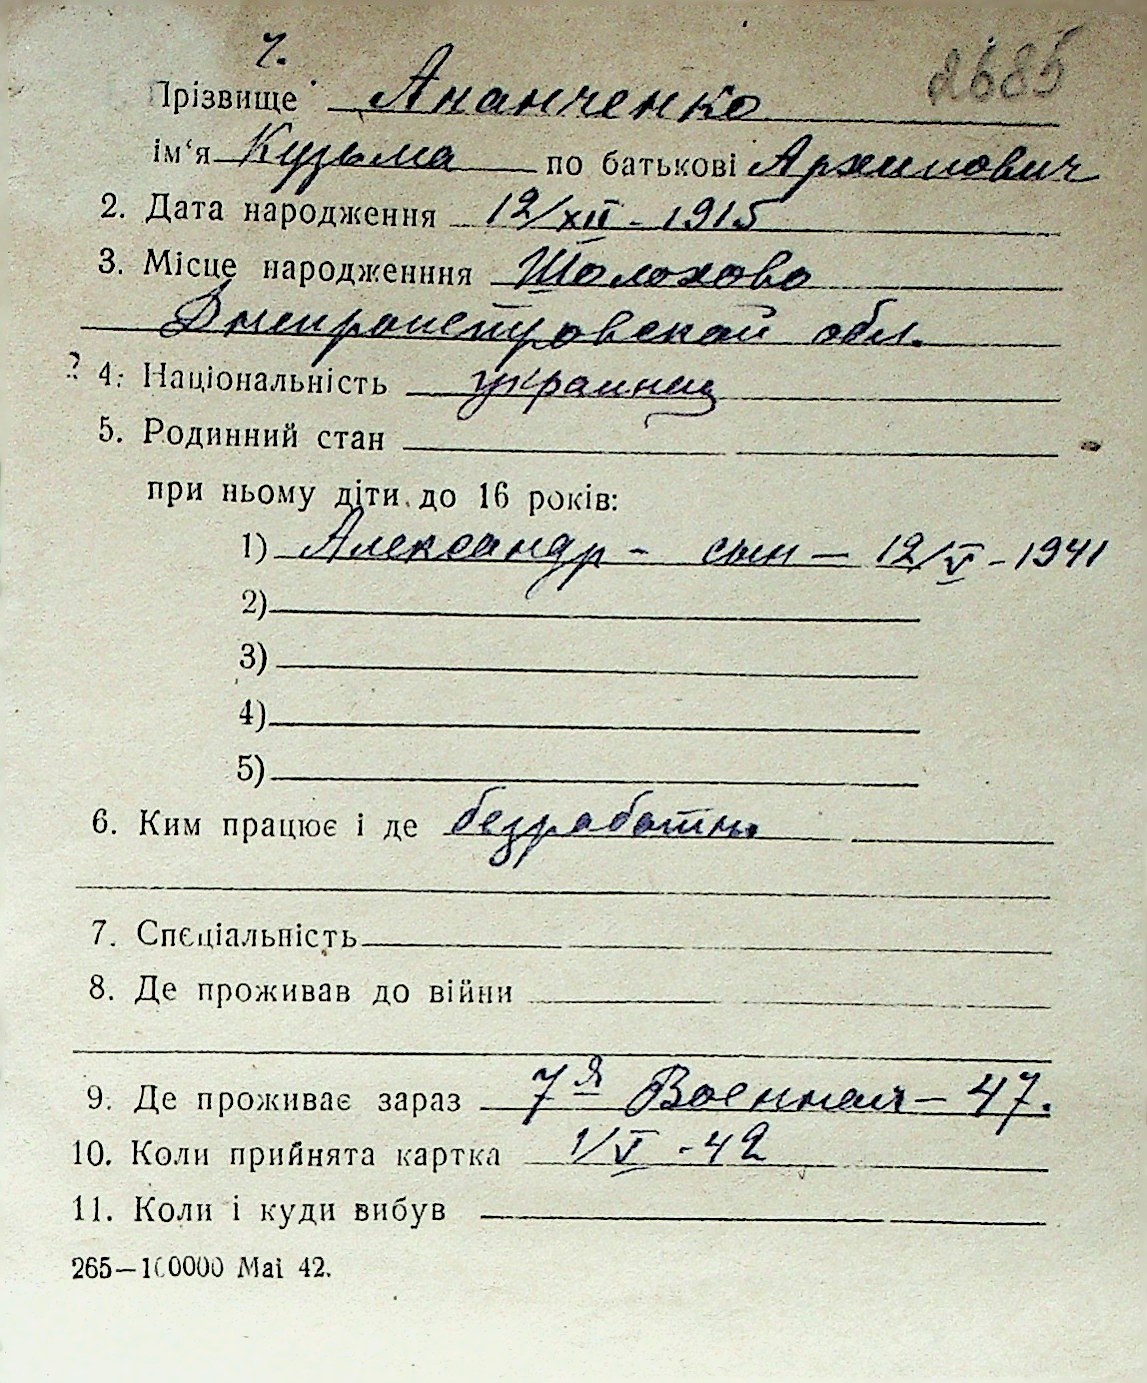 ч. 2685
Прізвище Ананченко
ім‘я Кузьма по батькові Архипович
2. Дата народження 12/XII - 1915
3. Місце народженння Шолохово
Днепропетровской обл.
? 4. Національність украинец
5. Родинний стан
при ньому діти до 16 років:
1) Александр - сын - 12/V - 1941
2)
3)
4)
5)
6. Ким працює і де безработн.
7. Спєціальність
8. Де проживав до війни
9. Де проживає зараз 7я Военная - 47.
10. Коли прийнята картка 1/V - 42
11. Коли і куди вибув
265—100000 Маі 42.